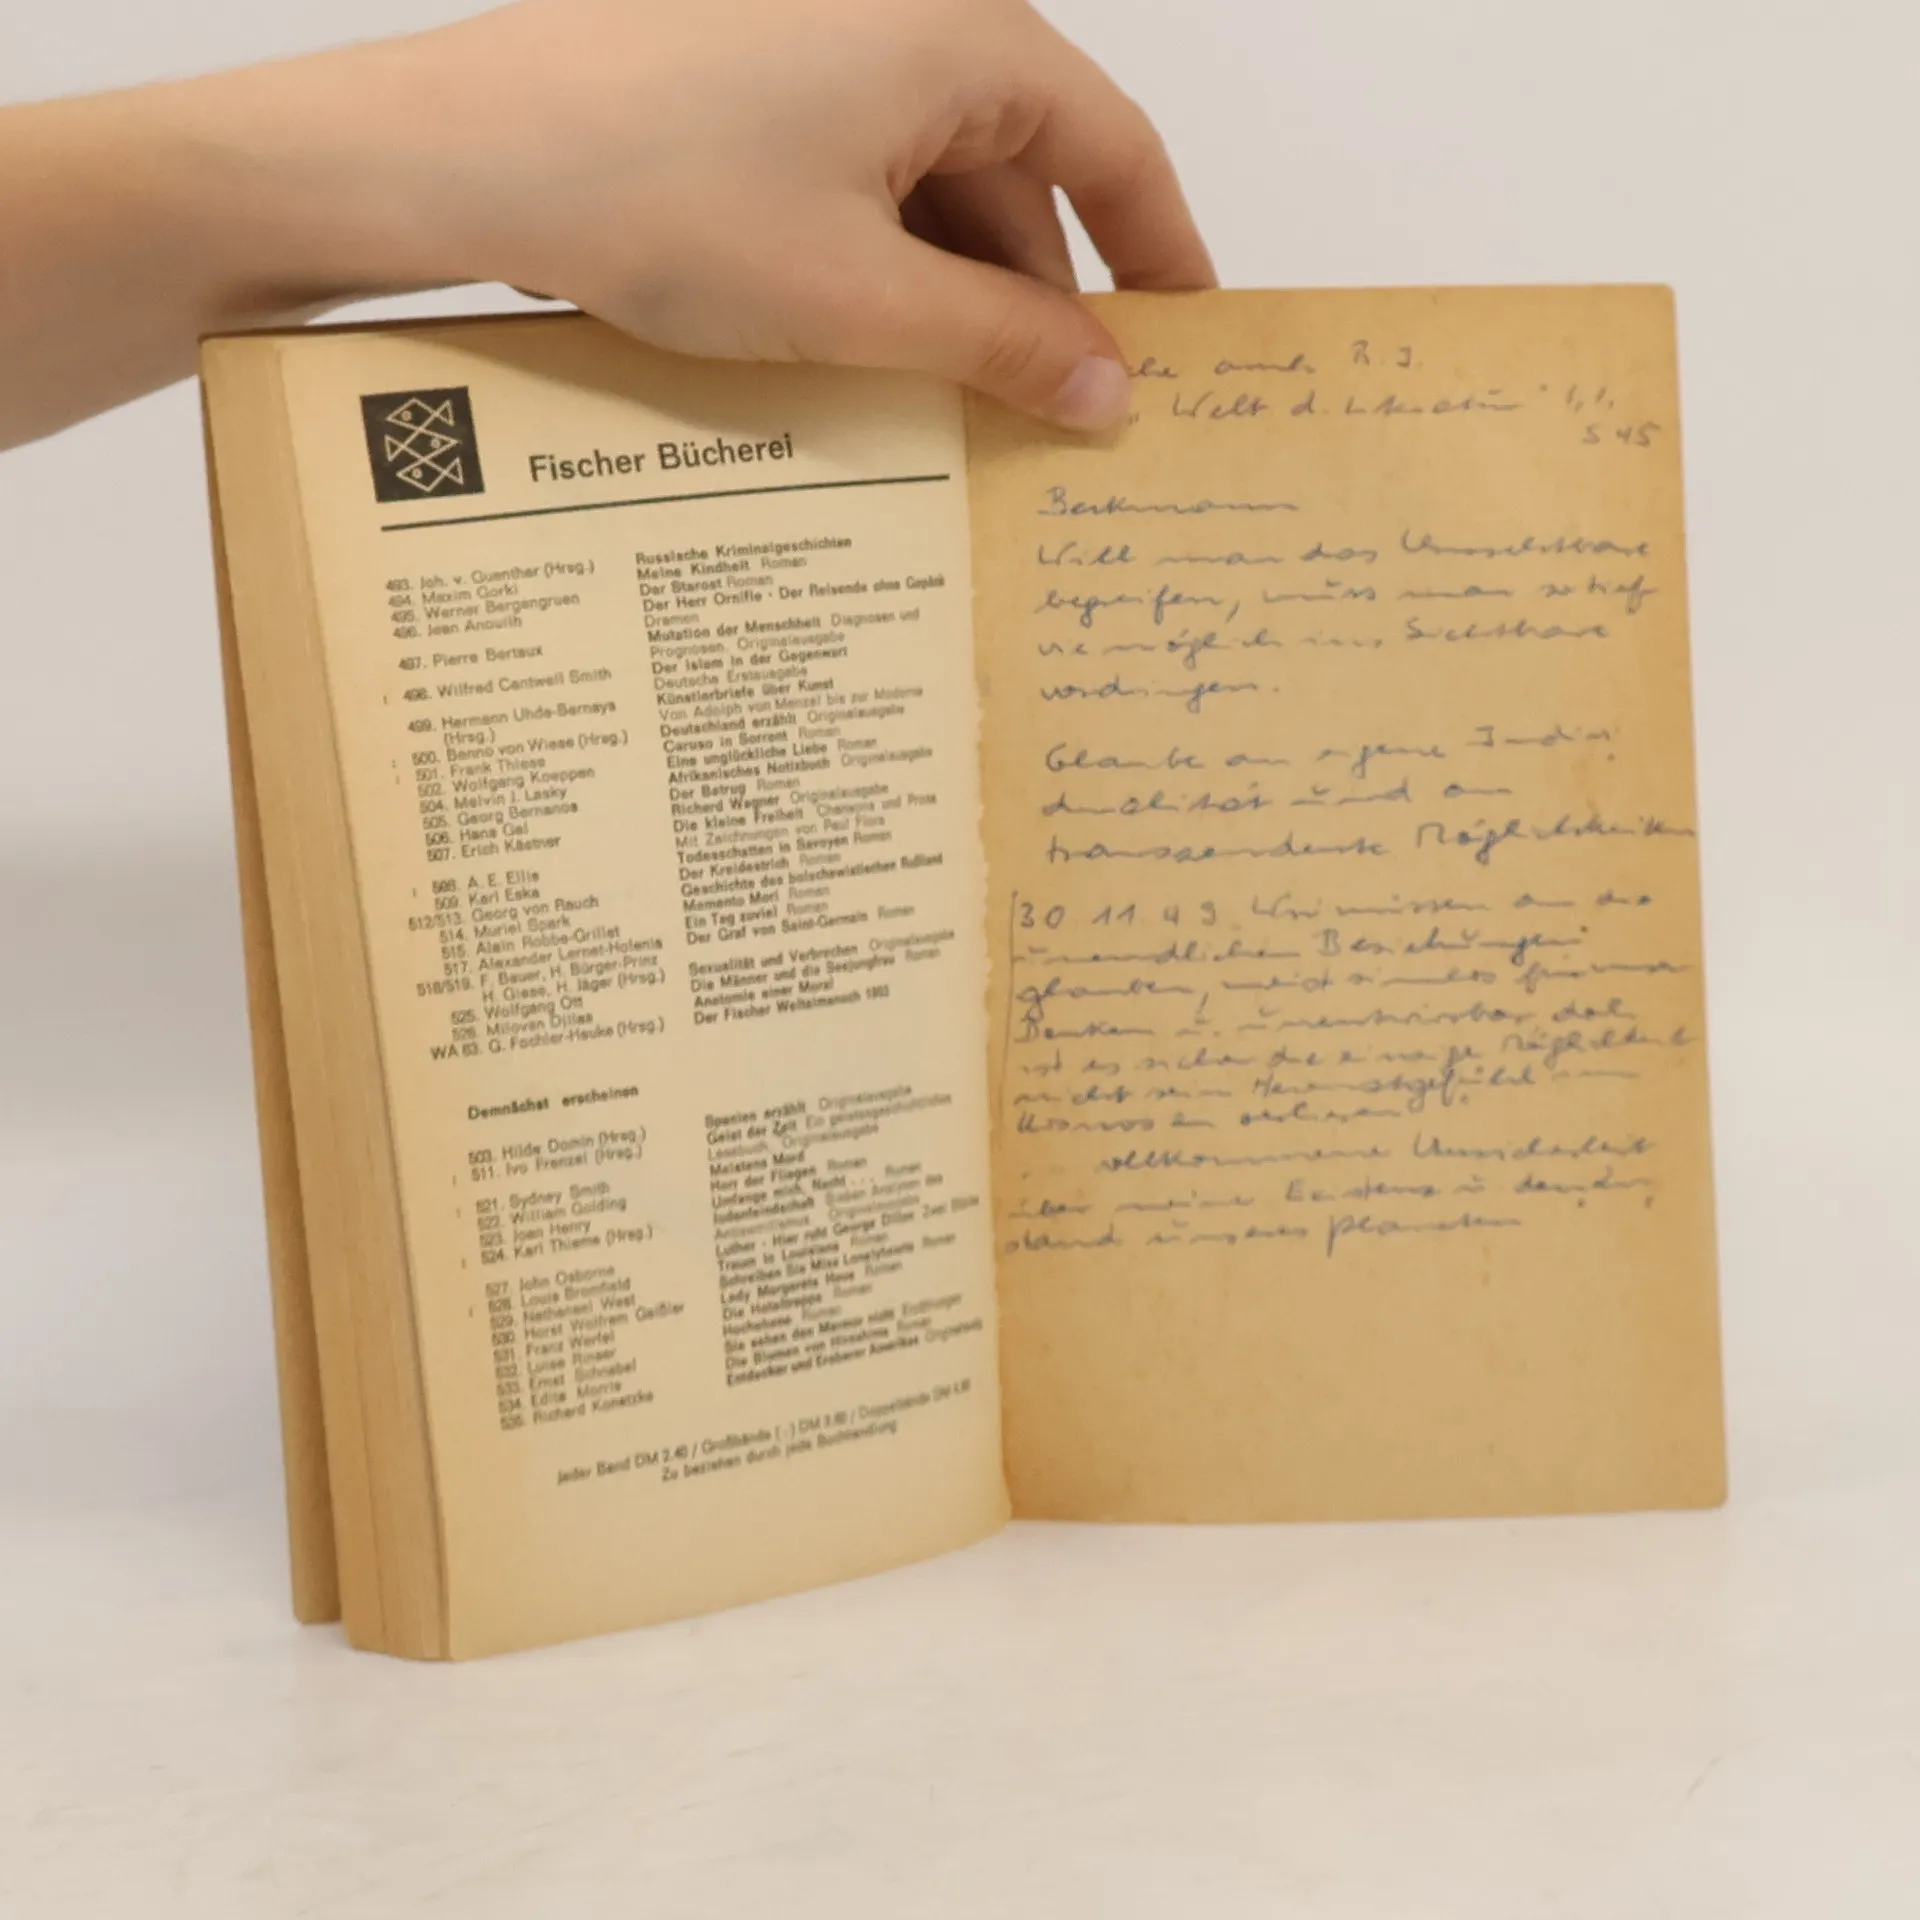 Fischer Bücherei
493. Joh. v. Guenther (Hrsg.) Russische Kriminalgeschichten
494. Maxim Gorki Meine Kindheit Roman
495. Werner Bergengruen Der Starost Roman
496. Jean Anouilh Der Herr Ornifle · Der Reisende ohne Gepäck
Dramen
497. Pierre Bertaux Mutation der Menschheit Diagnosen und
Prognosen. Originalausgabe
: 498. Wilfred Cantwell Smith Der Islam in der Gegenwart
Deutsche Erstausgabe
499. Hermann Uhde-Bernays Künstlerbriefe über Kunst
(Hrsg.) Von Adolph von Menzel bis zur Moderne
: 500. Benno von Wiese (Hrsg.) Deutschland erzählt Originalausgabe
: 501. Frank Thiess Caruso in Sorrent Roman
502. Wolfgang Koeppen Eine unglückliche Liebe Roman
504. Melvin J. Lasky Afrikanisches Notizbuch Originalausgabe
505. Georg Bernanos Der Betrug Roman
506. Hans Gal Richard Wagner Originalausgabe
507. Erich Kästner Die kleine Freiheit Chansons und Prosa
Mit Zeichnungen von Paul Flora
: 508. A. E. Ellis Todesschatten in Savoyen Roman
509. Karl Eska Der Kreidestrich Roman
512/513. Georg von Rauch Geschichte des bolschewistischen Rußland
514. Muriel Spark Memento Mori Roman
515. Alain Robbe-Grillet Ein Tag zuviel Roman
517. Alexander Lernet-Holenia Der Graf von Saint-Germain Roman
518/519. F. Bauer, H. Bürger-Prinz
H. Giese, H. Jäger (Hrsg.) Sexualität und Verbrechen Originalausgabe
525. Wolfgang Ott Die Männer und die Seejungfrau Roman
526. Milovan Djilas Anatomie einer Moral
WA 63. G. Fochler-Hauke (Hrsg.) Der Fischer Weltalmanach 1963
Demnächst erscheinen
503. Hilde Domin (Hrsg.) Spanien erzählt Originalausgabe
: 511. Ivo Frenzel (Hrsg.) Geist der Zeit Ein geistesgeschichtliches
Lesebuch. Originalausgabe
: 521. Sydney Smith Meistens Mord
522. William Golding Herr der Fliegen Roman
523. Joan Henry Umfange mich, Nacht ... Roman
: 524. Karl Thieme (Hrsg.) Judenfeindschaft Sieben Analysen des
Antisemitismus. Originalausgabe
527. John Osborne Luther · Hier ruht George Dillon Zwei Stücke
: 528. Louis Bromfield Traum in Louisiana Roman
529. Nathanael West Schreiben Sie Miss Lonelyhearts Roman
530. Horst Wolfram Geißler Lady Margarets Haus Roman
531. Franz Werfel Die Hoteltreppe Roman
532. Luise Rinser Hochebene Roman
533. Ernst Schnabel Sie sehen den Marmor nicht Erzählungen
534. Edita Morris Die Blumen von Hiroshima Roman
535. Richard Konetzke Entdecker und Eroberer Amerikas Originalausg
Jeder Band DM 2.40 / Großbände (:) DM 3.60 / Doppelbände DM 4.80
Zu beziehen durch jede Buchhandlung
auch R. J.
"Welt d. Literatur" 1,1,
S 45
Beckmann
Will man das Unsichtbare
begreifen, muss man so tief
wie möglich ins Sichtbare
vordringen.
Glaube an eigene Indivi
dualität und an
transzendente Möglichkeiten
30 11 49 Wir müssen an die
unendlichen Beziehungen
glauben, meist sinnlos für unser
Denken u.
ist es sicher die einzige Möglichkeit
nicht sein im
Kosmos zu verlieren
vollkommene Unsicherheit
über meine Existenz u den Zu
stand unseres Planeten